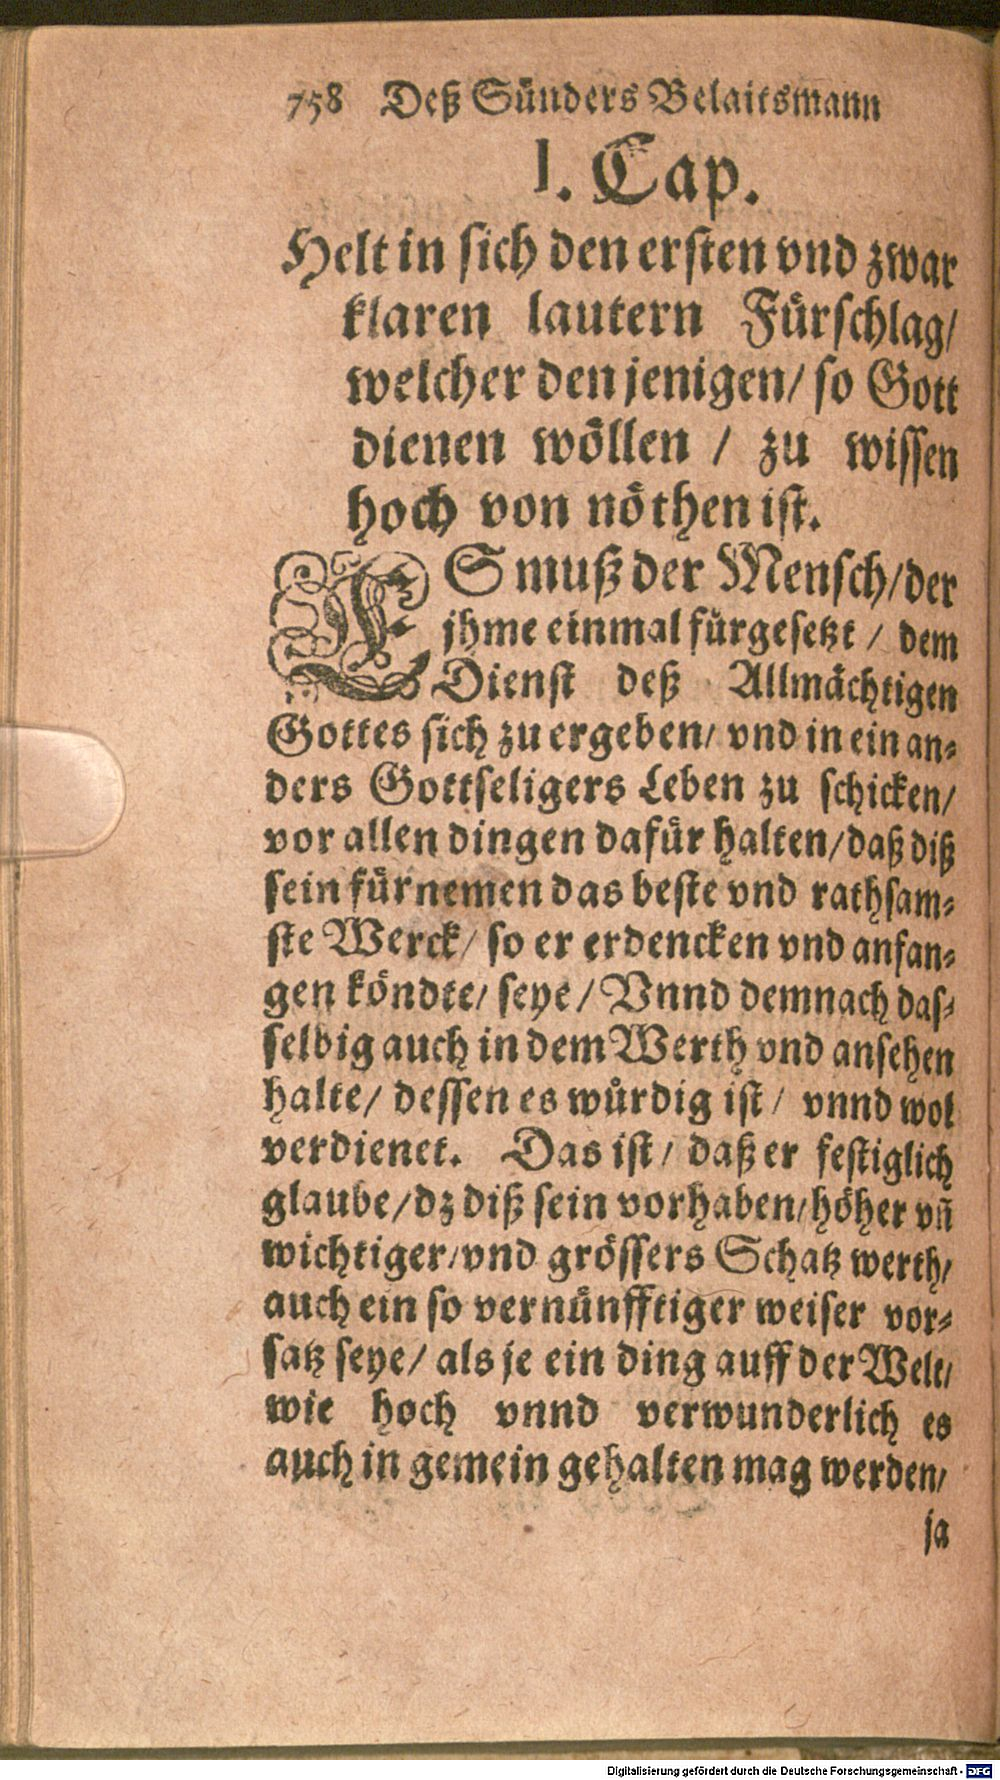 758 Deß Sünders Belaitsmann
I. Cap.
Helt in sich den ersten vnd zwar
klaren lautern Fürschlag/
welcher den jenigen/ so Gott
dienen wöllen / zu wissen
hoch von nöthen ist.
ES muß der Mensch/ der
jhme einmal fürgesetzt / dem
Dienst deß Allmächtigen
Gottes sich zu ergeben/ vnd in ein an-
ders Gottseligers Leben zu schicken/
vor allen dingen dafür halten/ daß diß
sein fürnemen das beste vnd rathsam-
ste Werck/ so er erdencken vnd anfan-
gen köndte/ seye/ Vnnd demnach das-
selbig auch in dem Werth vnd ansehen
halte/ dessen es würdig ist/ vnnd wol
verdienet. Das ist/ daß er festiglich
glaube/ dz diß sein vorhaben/ höher vñ
wichtiger/ vnd grössers Schatz werth/
auch ein so vernünfftiger weiser vor-
satz seye/ als je ein ding auff der Welt/
wie hoch vnnd verwunderlich es
auch in gemein gehalten mag werden/
ja
Digitalisierung gefördert durch die Deutsche Forschungsgemeinschaft - DFG